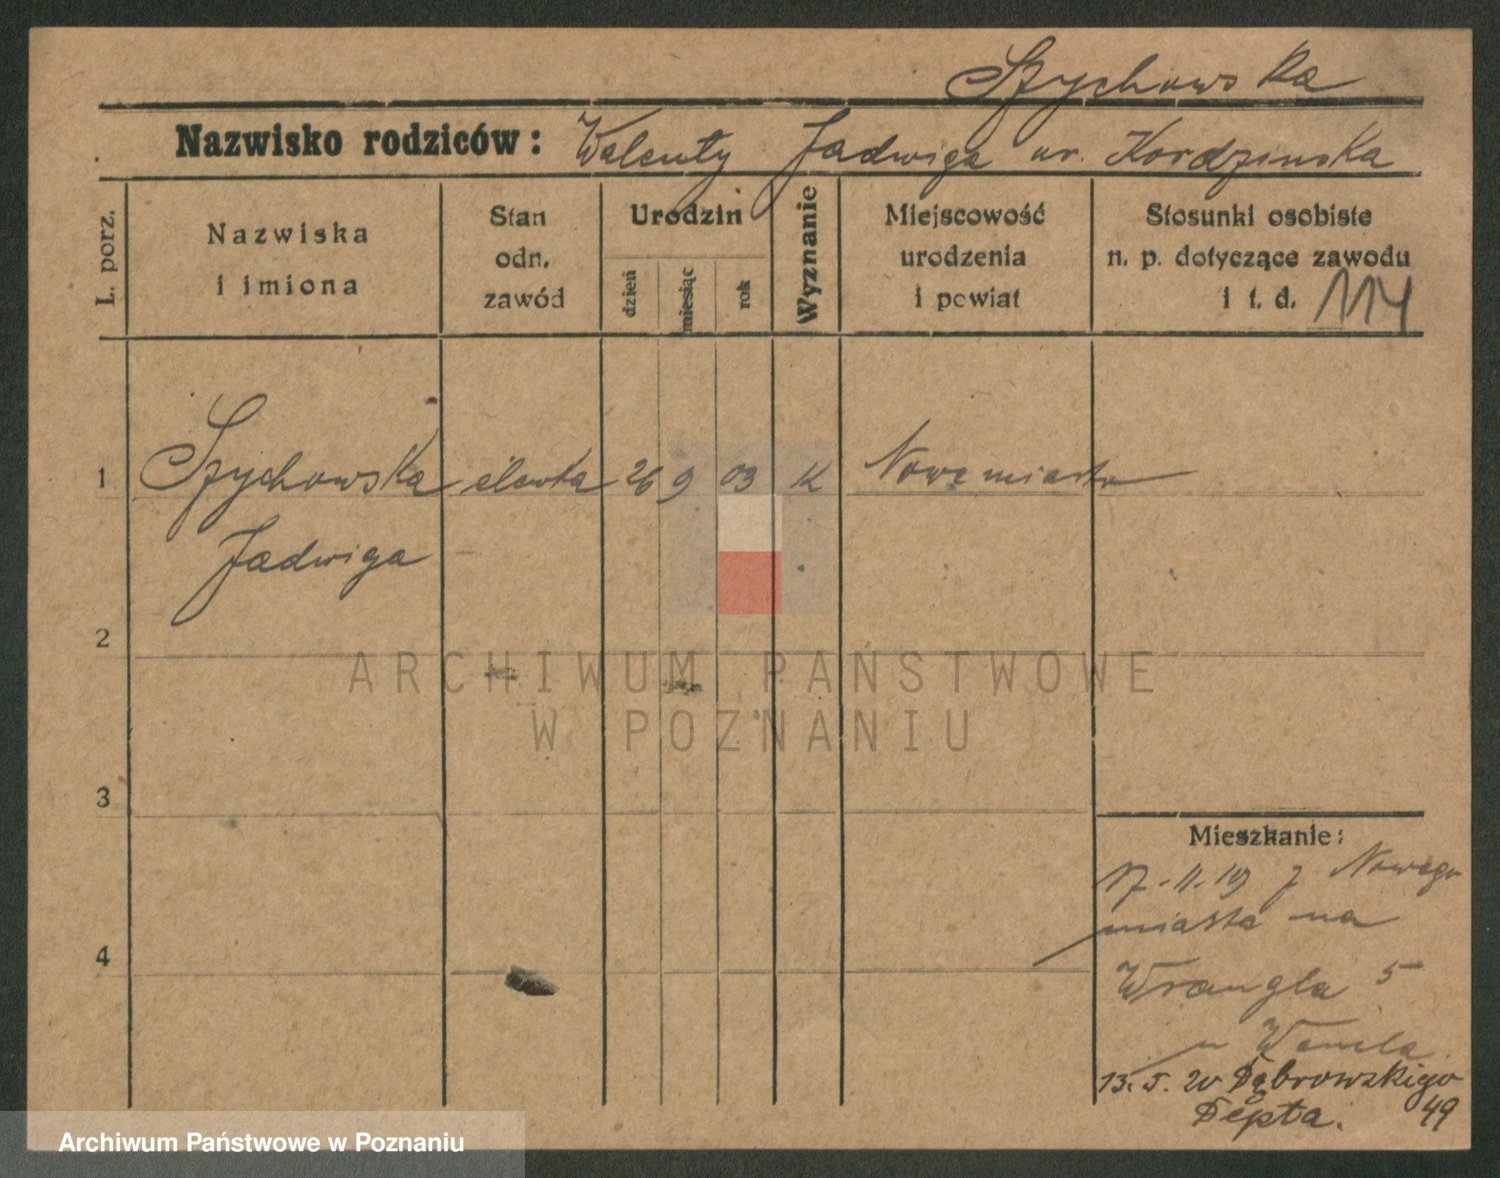 Szychowska
Nazwisko rodziców: Walenty Jadwiga ur. Kordzinska
L. porz.
Nazwiska
i imiona
Stan
odn.
zawód
Urodzin
dzień
miesiąc
rok
Wyznanie
Miejscowość
urodzenia
i powiat
Stosunki osobiste
n. p. dotyczące zawodu
i t. d. 114
1 Szychowska elewka 26 9 03 K Nowemiasto
Jadwiga
2
ARCHIWUM PAŃSTWOWE
W POZNANIU
3
Mieszkanie:
17.11.19 z Nowego
miasta na
4
Wrangla 5
u
13.5.20 Dąbrowskiego
49
Depta.
Archiwum Państwowe w Poznaniu